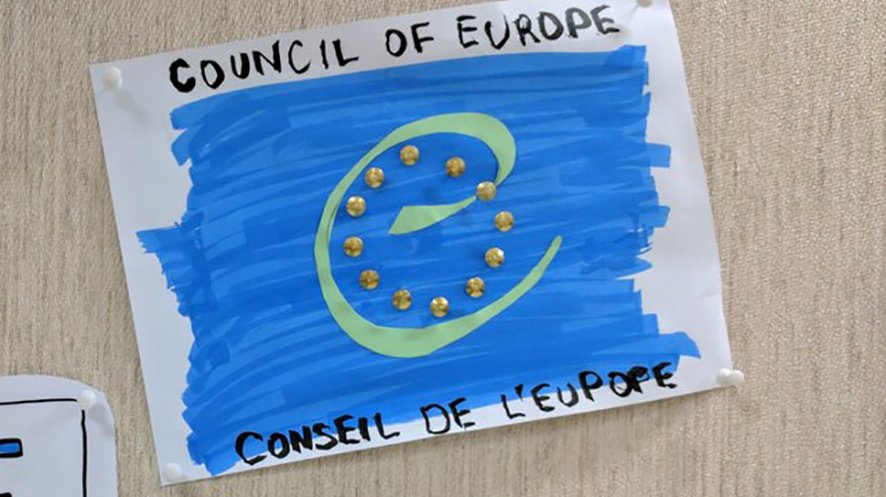 COUNCIL OF EUROPE
CONSEIL DE L'EUPOPE